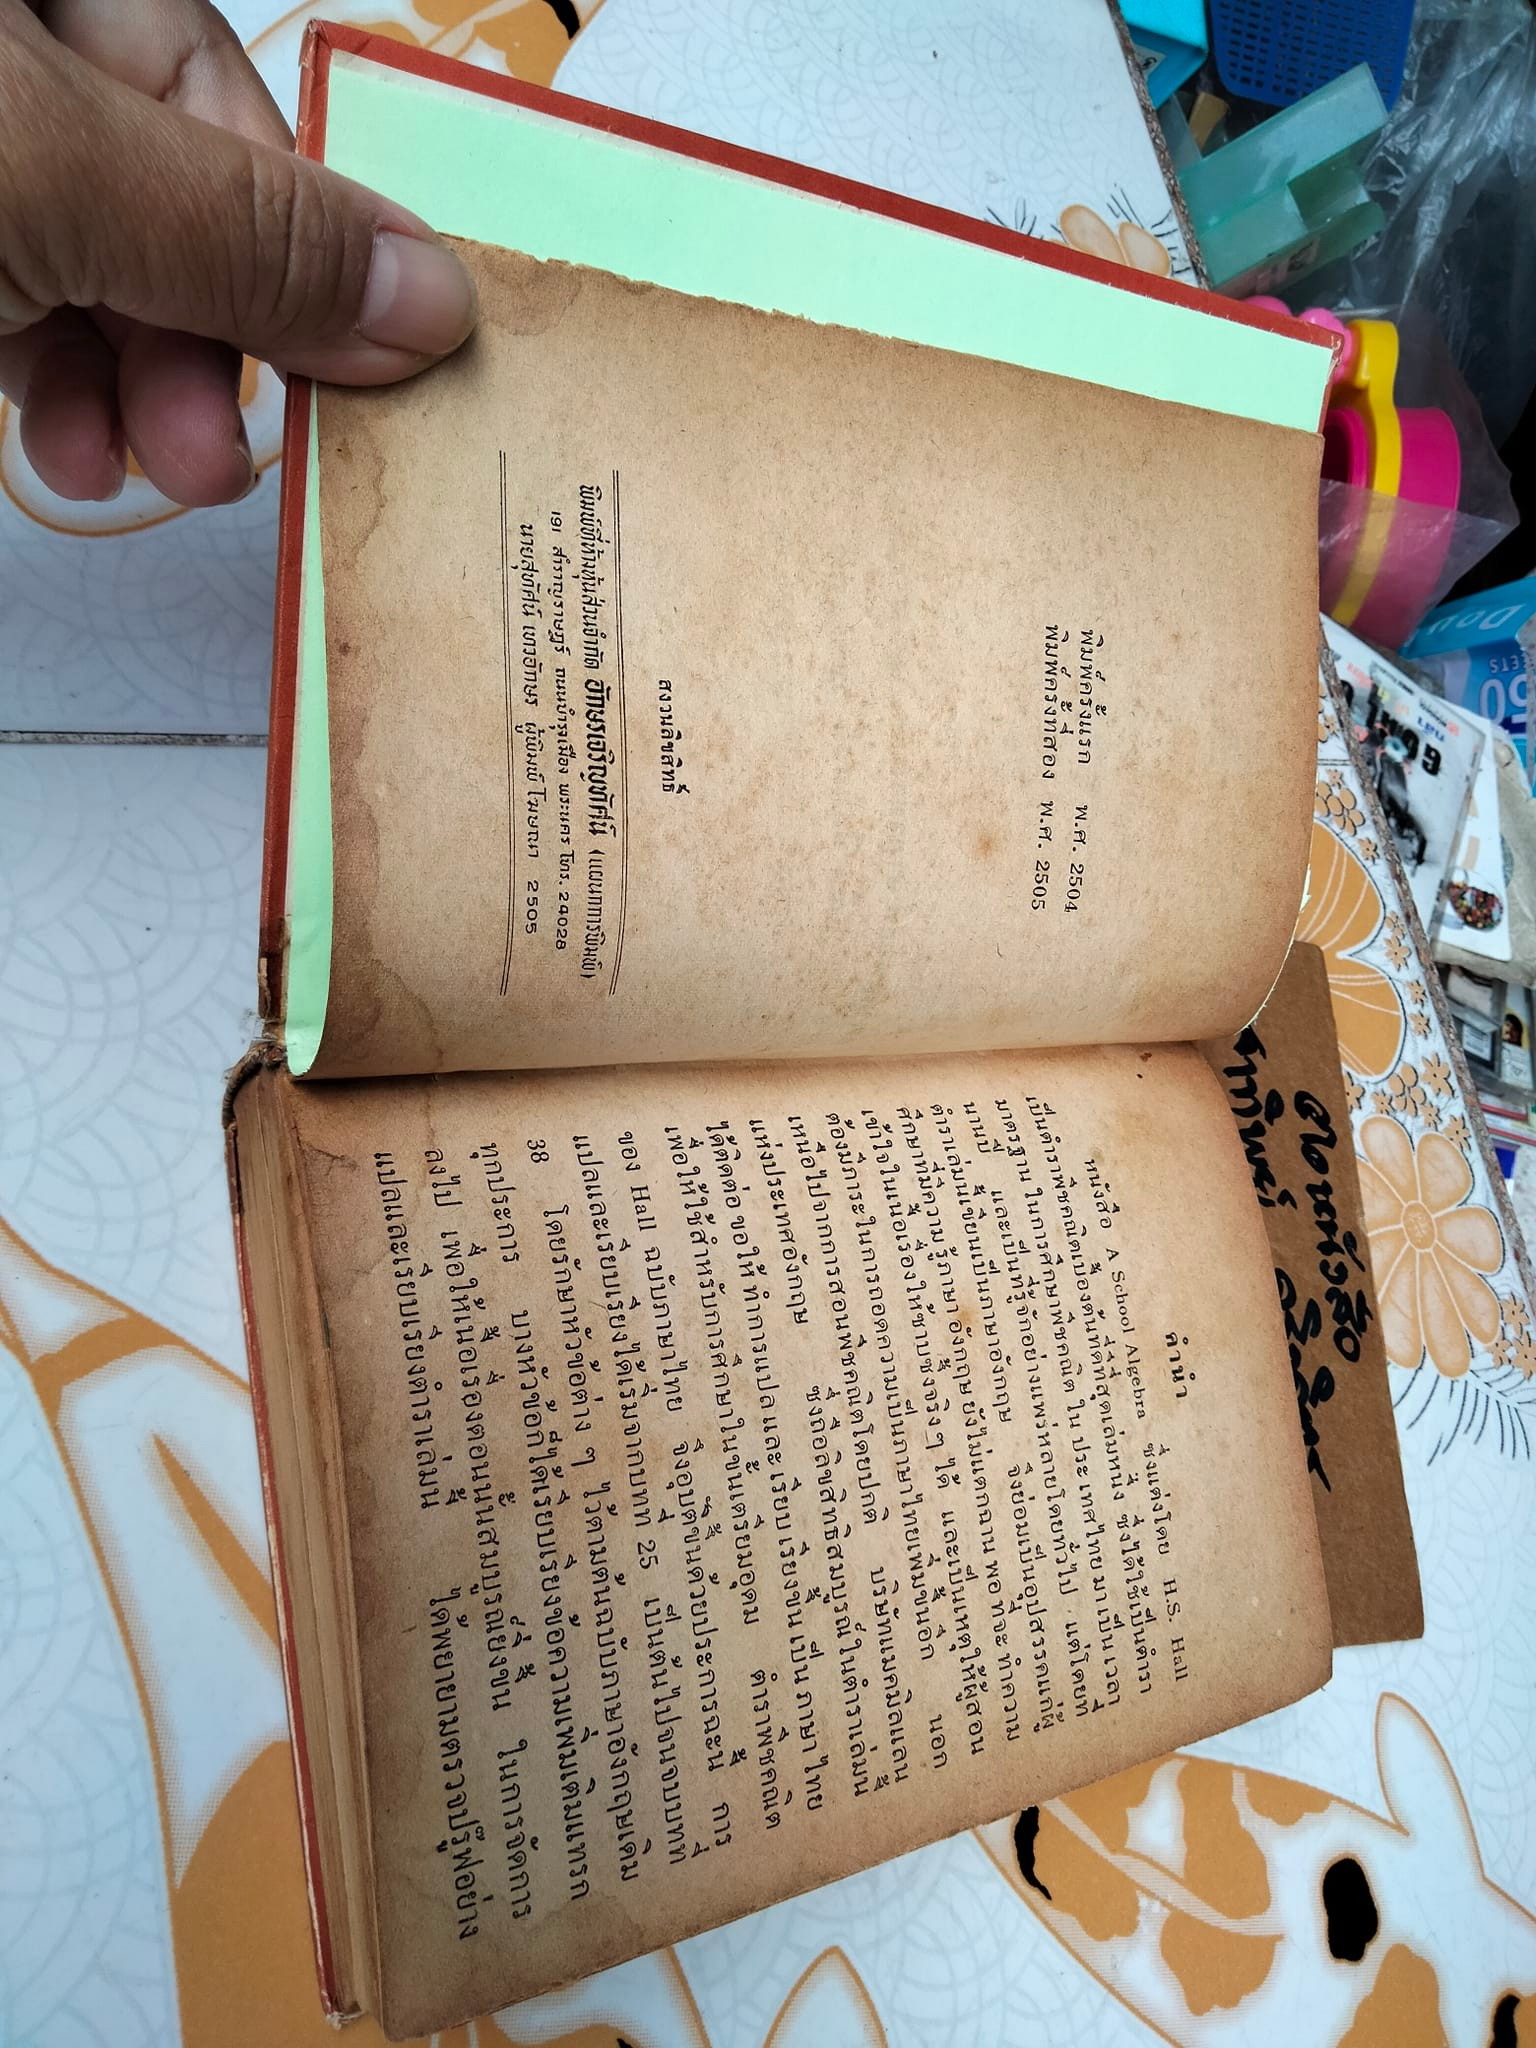 พิมพ์ครั้งแรก พ.ศ. 2504
พิมพ์ครั้งที่สอง พ.ศ. 2505
สงวนลิขสิทธิ์
พิมพ์ที่ห้างหุ้นส่วนจำกัด อักษรเจริญทัศน์ (แผนกการพิมพ์)
191 สำราญราษฎร์ ถนนบำรุงเมือง พระนคร โทร. 24028
นายสุทัศน์ เหาอักษร ผู้พิมพ์โฆษณา 2505
คำนำ
หนังสือ A School Algebra ซึ่งแต่งโดย H.S. Hall
เป็นตำราพีชคณิตเบื้องต้นที่ดีที่สุดเล่มหนึ่ง ซึ่งได้ใช้เป็นตำรา
มาตรฐาน ในการศึกษาพีชคณิต ใน ประเทศไทย มาเป็น เวลา
นานปี และเป็นที่รู้จักอย่างแพร่หลายโดยทั่วไป แต่โดยที่
ตำราเล่มนี้เขียนเป็นภาษาอังกฤษ จึงย่อมเป็นอุปสรรคแก่ผู้
ศึกษาที่มีความรู้ภาษาอังกฤษ ยังไม่แตกฉาน พอที่จะทำความ
เข้าใจในเนื้อเรื่องให้ซาบซึ้งจริง ๆ ได้ และเป็นเหตุให้ผู้สอน
ต้องมีภาระในการถอดความเป็นภาษาไทยเพิ่มขึ้นอีก นอก
เหนือไปจากการสอนพีชคณิตโดยปกติ บริษัทแมคมิลแลน
แห่งประเทศอังกฤษ ซึ่งถือลิขสิทธิ์สมบูรณ์ในตำราเล่มนี้
ได้ติดต่อ ขอให้ ทำการแปล และ เรียบ เรียงขึ้น เป็น ภาษา ไทย
เพื่อให้ใช้สำหรับการศึกษาในชั้นเตรียมอุดม ตำราพีชคณิต
ของ Hall ฉบับภาษาไทย จึงอุบัติขึ้นด้วยประการฉะนี้ การ
แปลและเรียบเรียงได้เริ่มจากบทที่ 25 เป็นต้นไปจนจบบทที่
38 โดยรักษาหัวข้อต่าง ๆ ไว้ตามต้นฉบับภาษาอังกฤษเดิม
ทุกประการ บางหัวข้อก็ได้เรียบเรียงข้อความเพิ่มเติมแทรก
ลงไป เพื่อให้เนื้อเรื่องตอนนั้นสมบูรณ์ยิ่งขึ้น ในการจัดการ
แปลและเรียบเรียงตำราเล่มนี้ ได้พยายามตรวจปรู๊ฟอย่าง